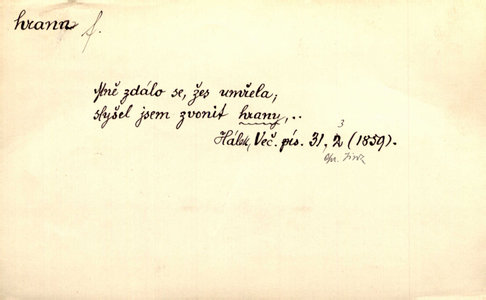 hrana f.
Mně zdálo se, žes umřela,
slyšel jsem zvonit hrany,..
3
Hálek, Več. pís. 31, 2 (1859).